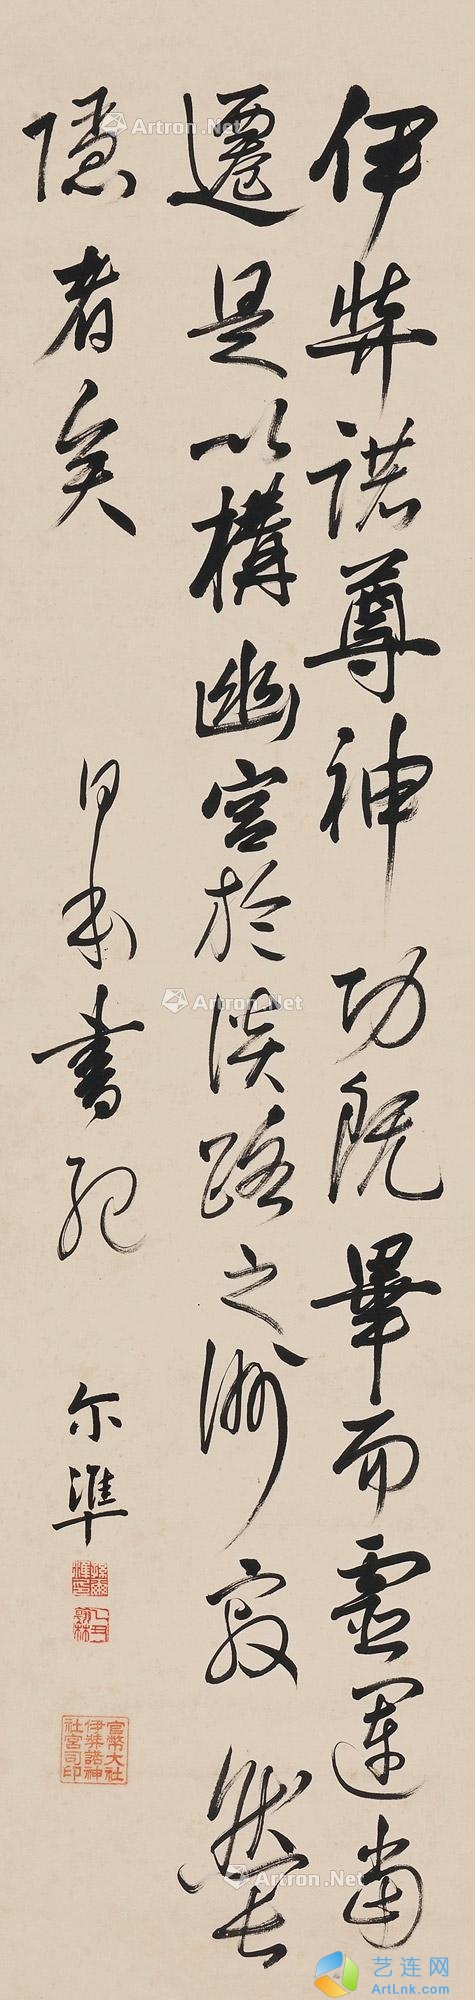 伊弉諾尊神功既畢而靈運當
遷是以構幽宮於淡路之洲寂然長
隱者矣 日本書紀 尔準
乙丑翰林
官幣大社
伊弉諾神
社宮司印
Artron.Net
Artron.Net
Artron.Net
艺连网
ArtLnk.com